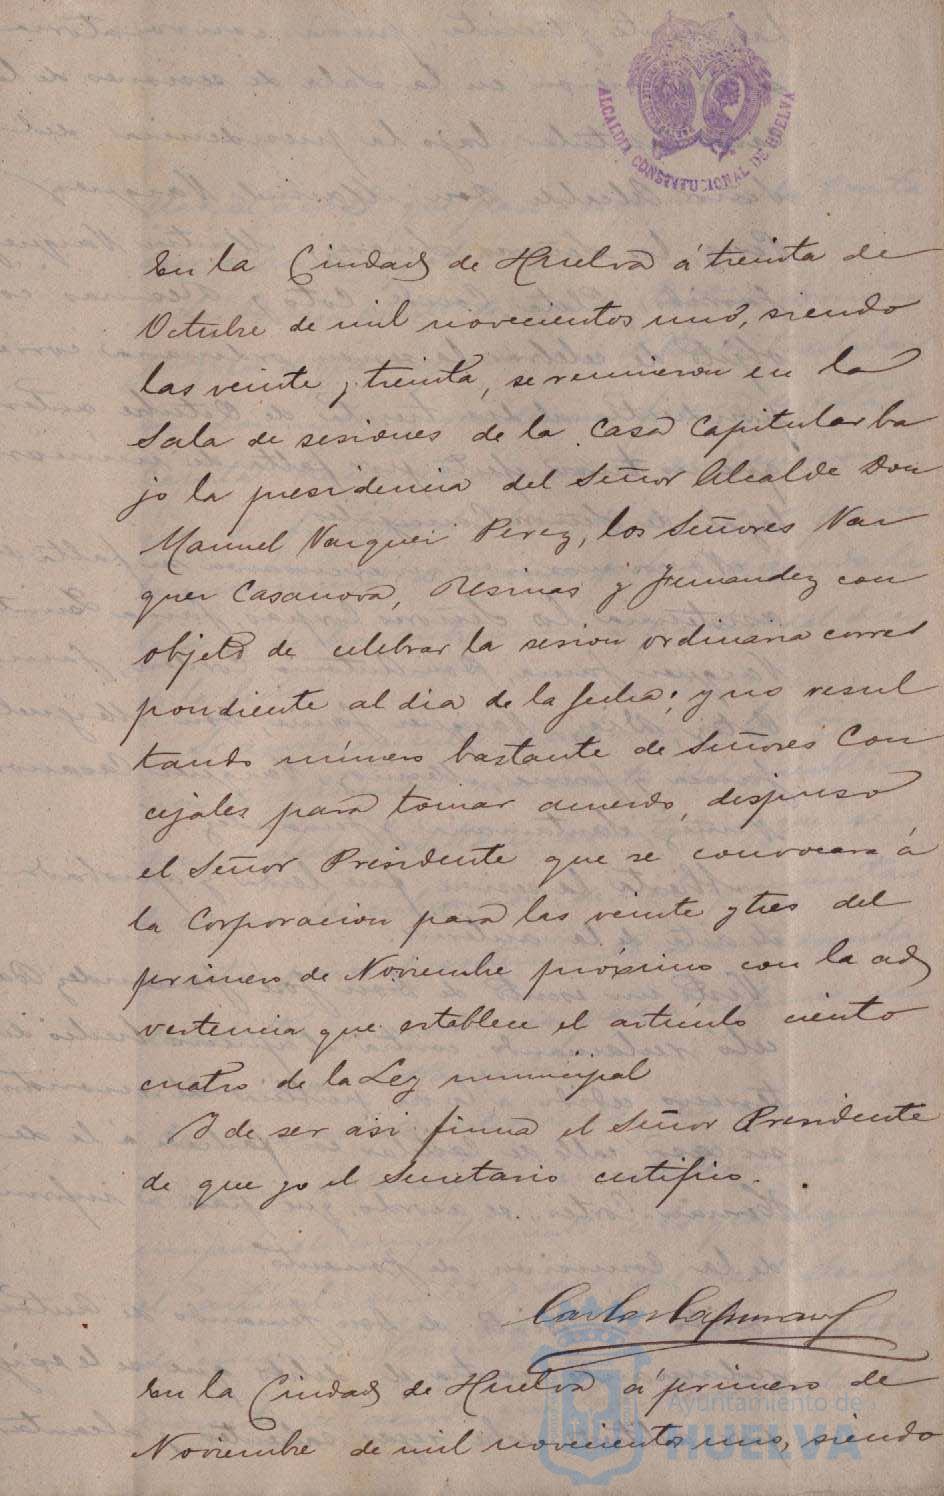 ALCALDIA CONSTITUCIONAL DE HUELVA
En la Ciudad de Huelva á treinta de
Octubre de mil novecientos uno, siendo
las veinte y treinta, se reunieron en la
Sala de sesiones de la Casa Capitular ba
jo la presidencia del Señor Alcalde Don
Manuel Vazquez Perez, los Señores Vaz
quez Casanova, Resinas y Fernandez con
objeto de celebrar la sesion ordinaria corres
pondiente al dia de la fecha; y no resul
tando número bastante de Señores Con
cejales para tomar acuerdo, dispuso
el Señor Presidente que se convocara á
la Corporacion para las veinte y tres del
primero de Noviembre próximo con la ad
vertencia que establece el artículo ciento
cuatro de la Ley municipal
Y de ser asi firma el Señor Presidente
de que yo el Secretario certifico.
En la Ciudad de Huelva á primero de
Noviembre de mil novecientos uno, siendo
Ayuntamiento de
HUELVA